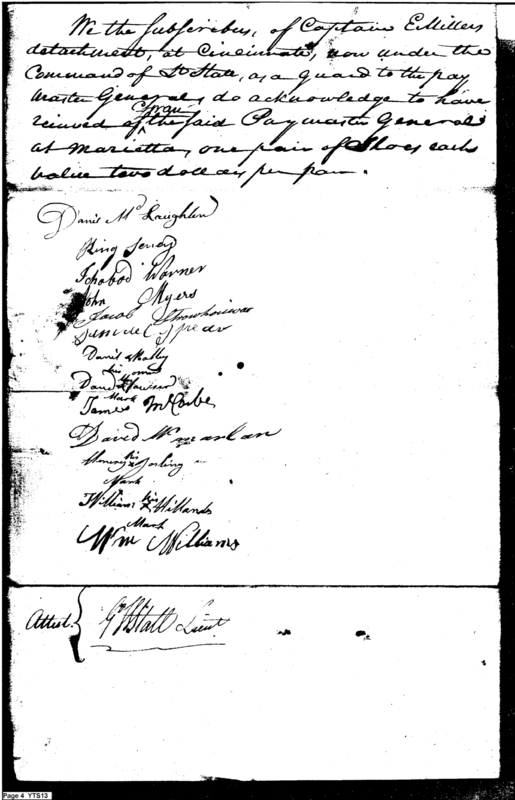 We the Subscribers, of Captain E. Millers
detachment, at Cincinnati, now under the
Command of Lt Stall, as a guard to the pay
master General, do acknowledge to have
received of the said Paymaster General
at Marietta, one pair of Shoes each
value two dollars per pair.
Danil McLaughlin
King
Ichabod Warner
John Myers
Jacob
Samuel Spear
Danil Malley
his
David
Mark
James McCabe
David
his
Mark
William his Hillands
Mark
Wm Williams
Attest. Stall Lieut
Page 4 YTS13